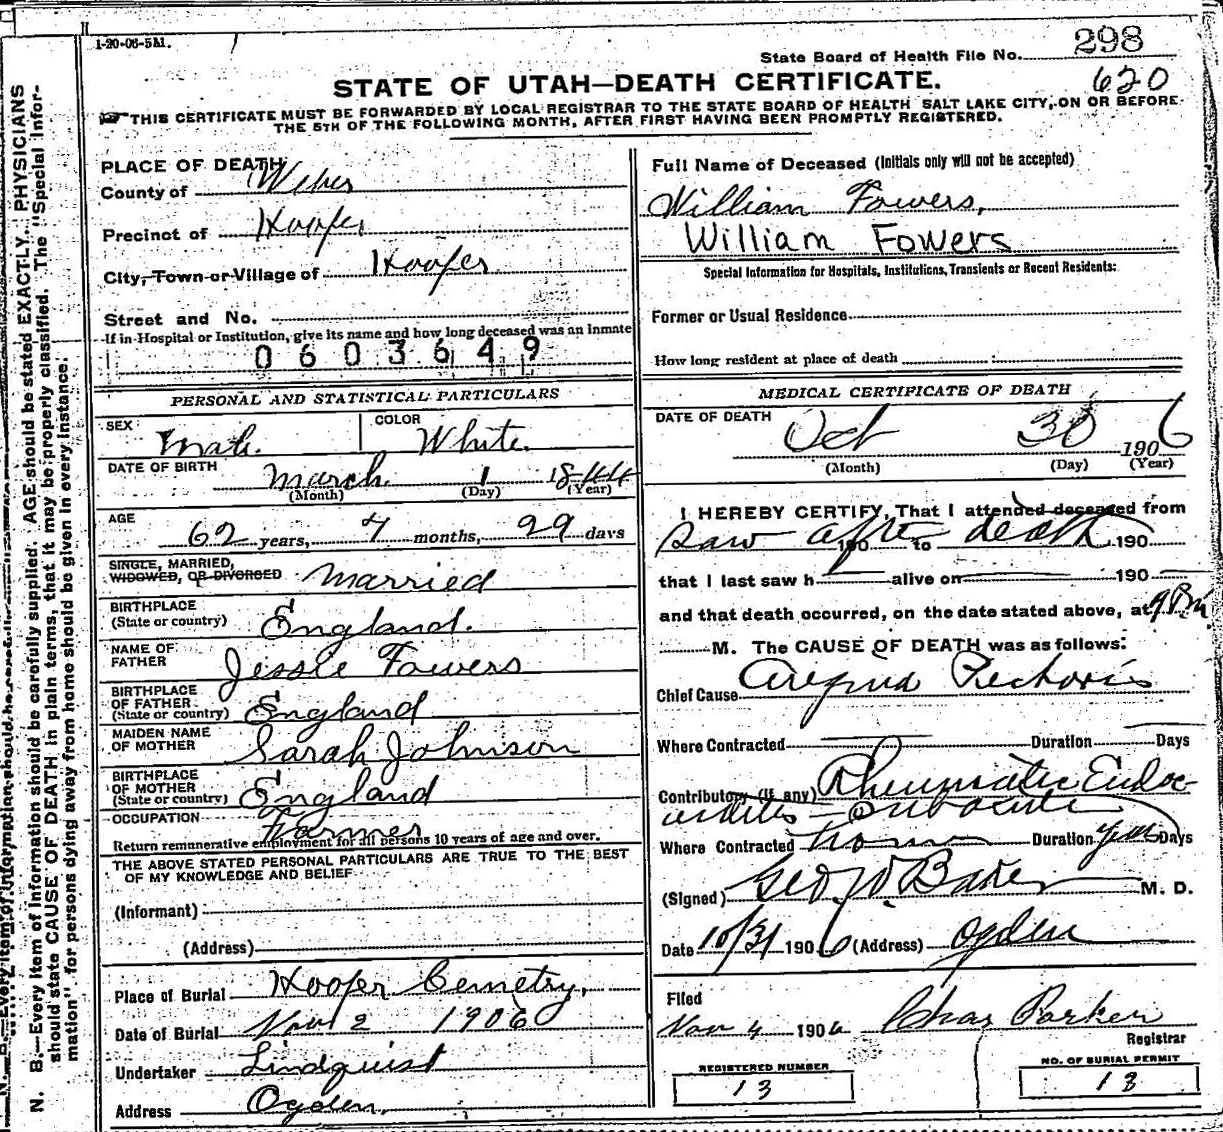 1-20-06-5M.
State Board of Health File No. 298
620
STATE OF UTAH—DEATH CERTIFICATE.
THIS CERTIFICATE MUST BE FORWARDED BY LOCAL REGISTRAR TO THE STATE BOARD OF HEALTH SALT LAKE CITY, ON OR BEFORE
THE 5TH OF THE FOLLOWING MONTH, AFTER FIRST HAVING BEEN PROMPTLY REGISTERED.
PLACE OF DEATH
County of Weber
Precinct of Hooper
City, Town or Village of Hooper
Street and No.
If in Hospital or Institution, give its name and how long deceased was an inmate
0603649
PERSONAL AND STATISTICAL PARTICULARS
SEX Male. COLOR White.
DATE OF BIRTH March 1 1844
(Month) (Day) (Year)
AGE 62 years, 7 months, 29 days
SINGLE, MARRIED,
WIDOWED, OR DIVORCED Married
BIRTHPLACE
(State or country) England.
NAME OF
FATHER Jessie Fowers
BIRTHPLACE
OF FATHER
(State or country) England
MAIDEN NAME
OF MOTHER Sarah Johnson
BIRTHPLACE
OF MOTHER
(State or country) England
OCCUPATION Farmer
Return remunerative employment for all persons 10 years of age and over.
THE ABOVE STATED PERSONAL PARTICULARS ARE TRUE TO THE BEST
OF MY KNOWLEDGE AND BELIEF
(Informant)
(Address)
Place of Burial Hooper Cemetry,
Date of Burial Nov 2 1906
Undertaker Lindquist
Address Ogden.
Full Name of Deceased (Initials only will not be accepted)
William Fowers,
William Fowers
Special Information for Hospitals, Institutions, Transients or Recent Residents:
Former or Usual Residence
How long resident at place of death
MEDICAL CERTIFICATE OF DEATH
DATE OF DEATH Oct 30 1906
(Month) (Day) (Year)
I HEREBY CERTIFY, That I attended deceased from
Saw after death 190 to 190
that I last saw h alive on 190
and that death occurred, on the date stated above, at 9 Pm
M. The CAUSE OF DEATH was as follows:
Chief Cause Angina Pectoris
Where Contracted Duration Days
Contributory (if any) Rheumatic Endoc-
arditis - Subacute
Where Contracted home Duration years Days
(Signed) Geo. W. Baker M. D.
Date 10/31 1906 (Address) Ogden
Filed
Nov 4 1906 Chas Parker
Registrar
REGISTERED NUMBER
13
NO. OF BURIAL PERMIT
13
N. B.—Every item of information should be carefully supplied. AGE should be stated EXACTLY. PHYSICIANS
should state CAUSE OF DEATH in plain terms, that it may be properly classified. The "Special Infor-
mation" for persons dying away from home should be given in every instance.